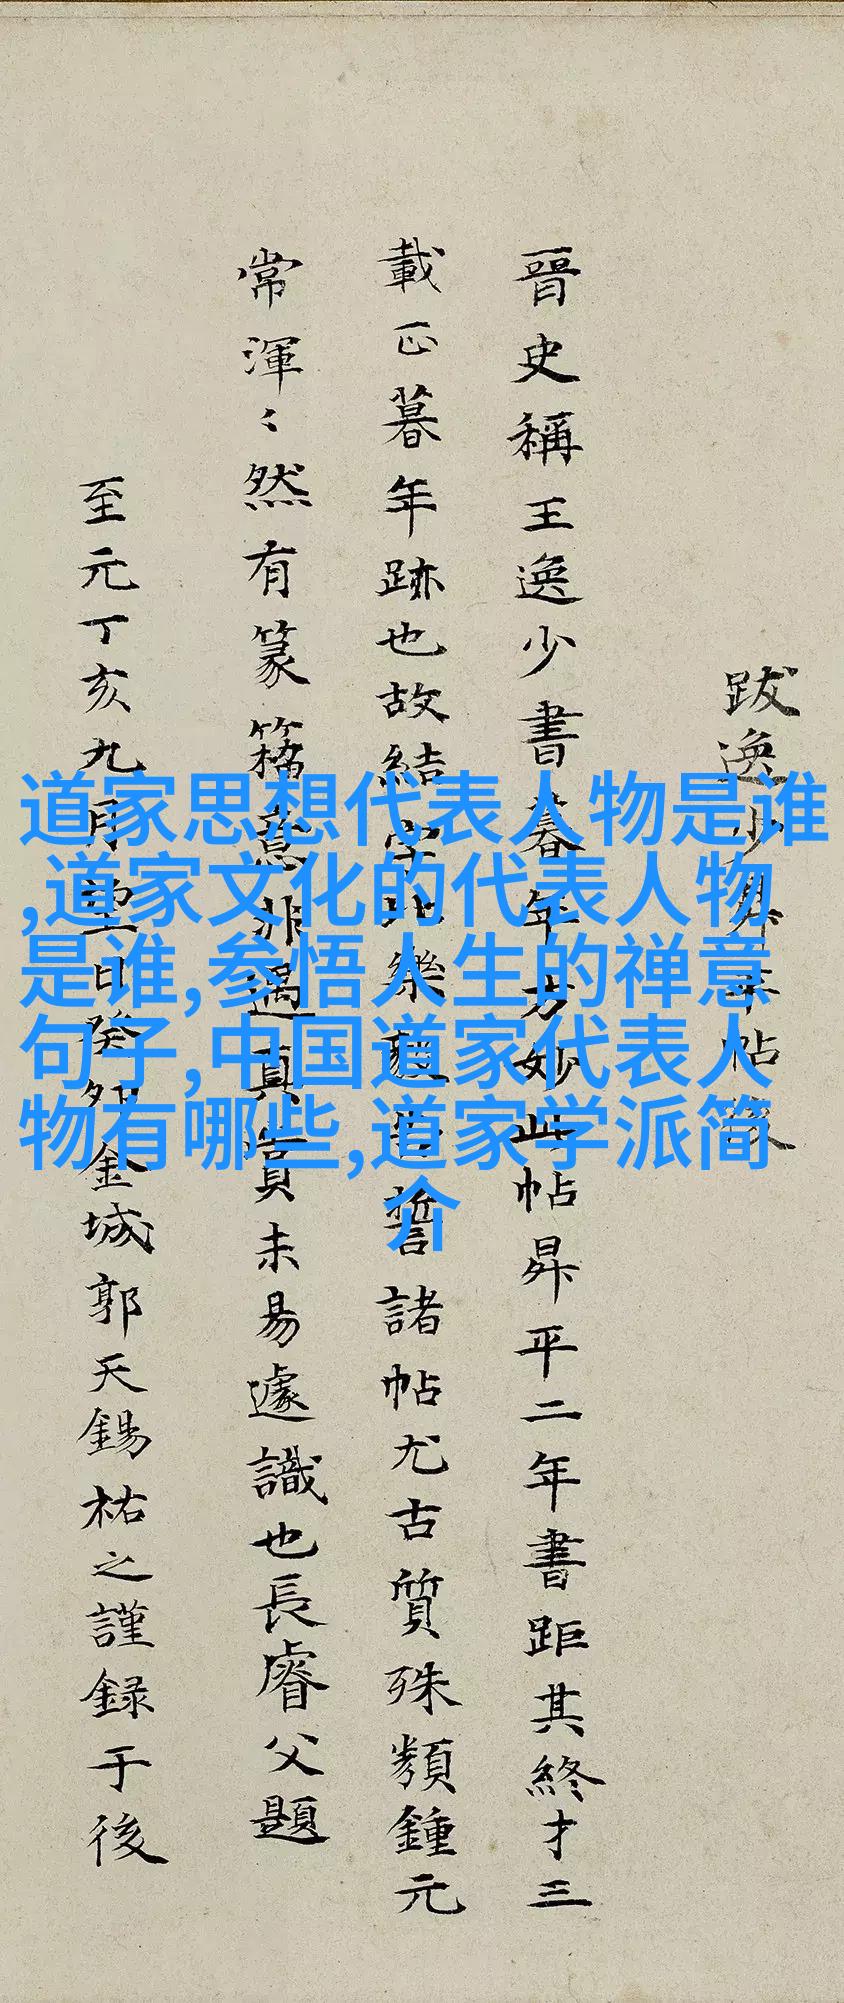 跋逸少昇平帖後
晉史稱王逸少書暮年方妙此帖昇平二年書距其終才三
載正暮年跡也故結字比樂毅告誓諸帖尤古質殊類鍾元
常渾〻然有篆籀意非遇真賞未易遽識也長睿父題
至元丁亥九月望日癸卯金城郭天錫祐之謹録于後
道家思想代表人物是谁
,道家文化的代表人物
是谁,参悟人生的禅意
句子,中国道家代表人
物有哪些,道家学派简
介